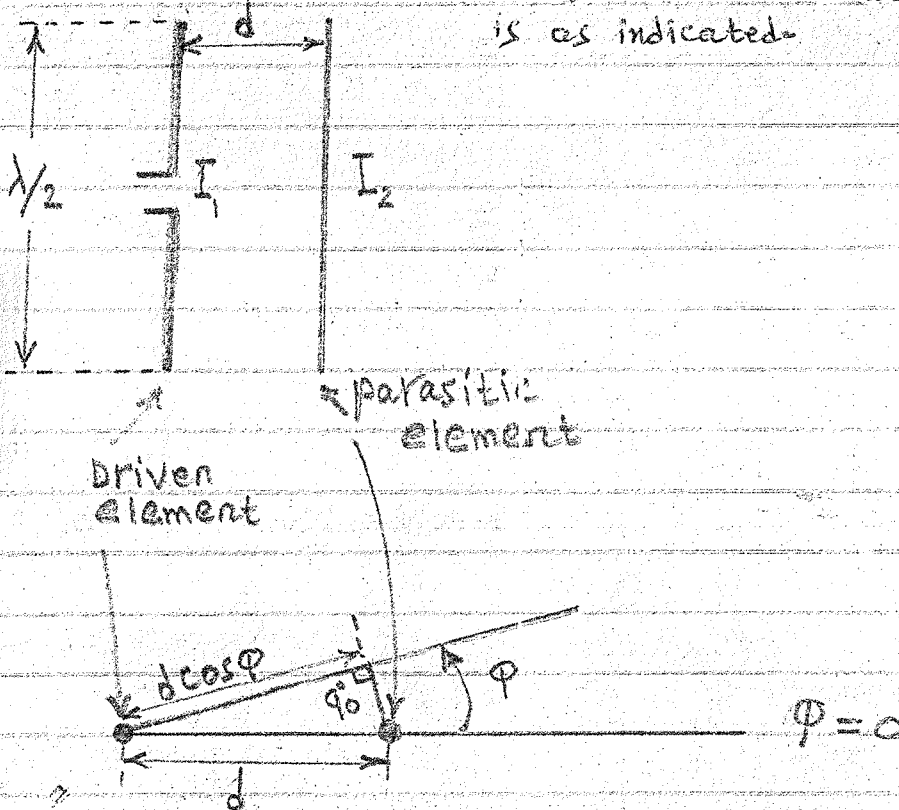 d
is as indicated-
λ/2
I₁
I₂
parasitic
element
Driven
element
dcosφ
90°
φ
φ = 0
d